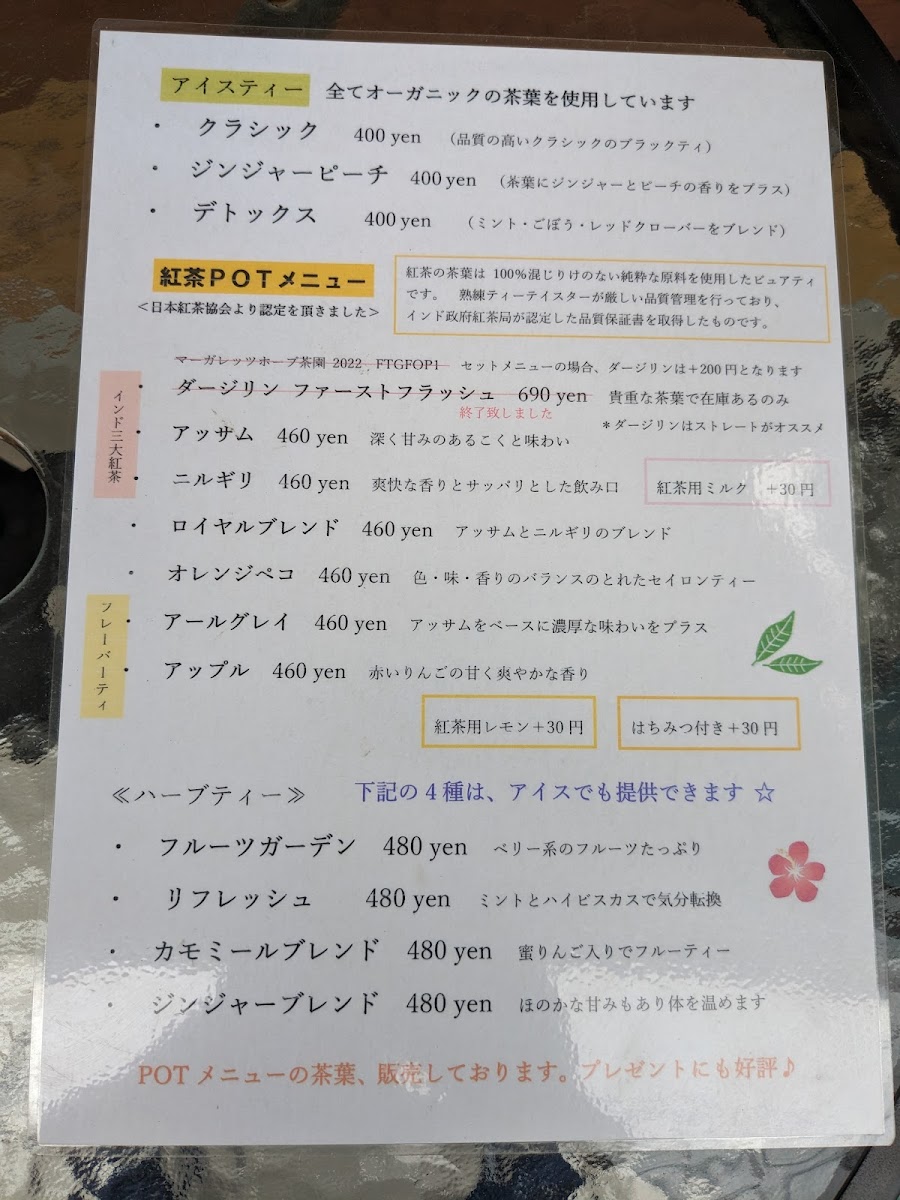 アイスティー 全てオーガニックの茶葉を使用しています
・ クラシック 400 yen （品質の高いクラシックのブラックティ）
・ ジンジャーピーチ 400 yen （茶葉にジンジャーとピーチの香りをプラス）
・ デトックス 400 yen （ミント・ごぼう・レッドクローバーをブレンド）
紅茶ＰＯＴメニュー
＜日本紅茶協会より認定を頂きました＞
紅茶の茶葉は 100％混じりけのない純粋な原料を使用したピュアティ
です。 熟練ティーテイスターが厳しい品質管理を行っており、
インド政府紅茶局が認定した品質保証書を取得したものです。
マーガレッツホープ茶園 2022 FTGFOP1 セットメニューの場合、ダージリンは＋200 円となります
インド三大紅茶
・ ダージリン ファーストフラッシュ 690 yen 貴重な茶葉で在庫あるのみ
終了致しました
＊ダージリンはストレートがオススメ
・ アッサム 460 yen 深く甘みのあるこくと味わい
・ ニルギリ 460 yen 爽快な香りとサッパリとした飲み口
紅茶用ミルク ＋30 円
・ ロイヤルブレンド 460 yen アッサムとニルギリのブレンド
・ オレンジペコ 460 yen 色・味・香りのバランスのとれたセイロンティー
フレーバーティ
・ アールグレイ 460 yen アッサムをベースに濃厚な味わいをプラス
・ アップル 460 yen 赤いりんごの甘く爽やかな香り
紅茶用レモン＋30 円
はちみつ付き＋30 円
≪ハーブティー≫ 下記の 4 種は、アイスでも提供できます ☆
・ フルーツガーデン 480 yen ベリー系のフルーツたっぷり
・ リフレッシュ 480 yen ミントとハイビスカスで気分転換
・ カモミールブレンド 480 yen 蜜りんご入りでフルーティー
・ ジンジャーブレンド 480 yen ほのかな甘みもあり体を温めます
POT メニューの茶葉、販売しております。プレゼントにも好評♪